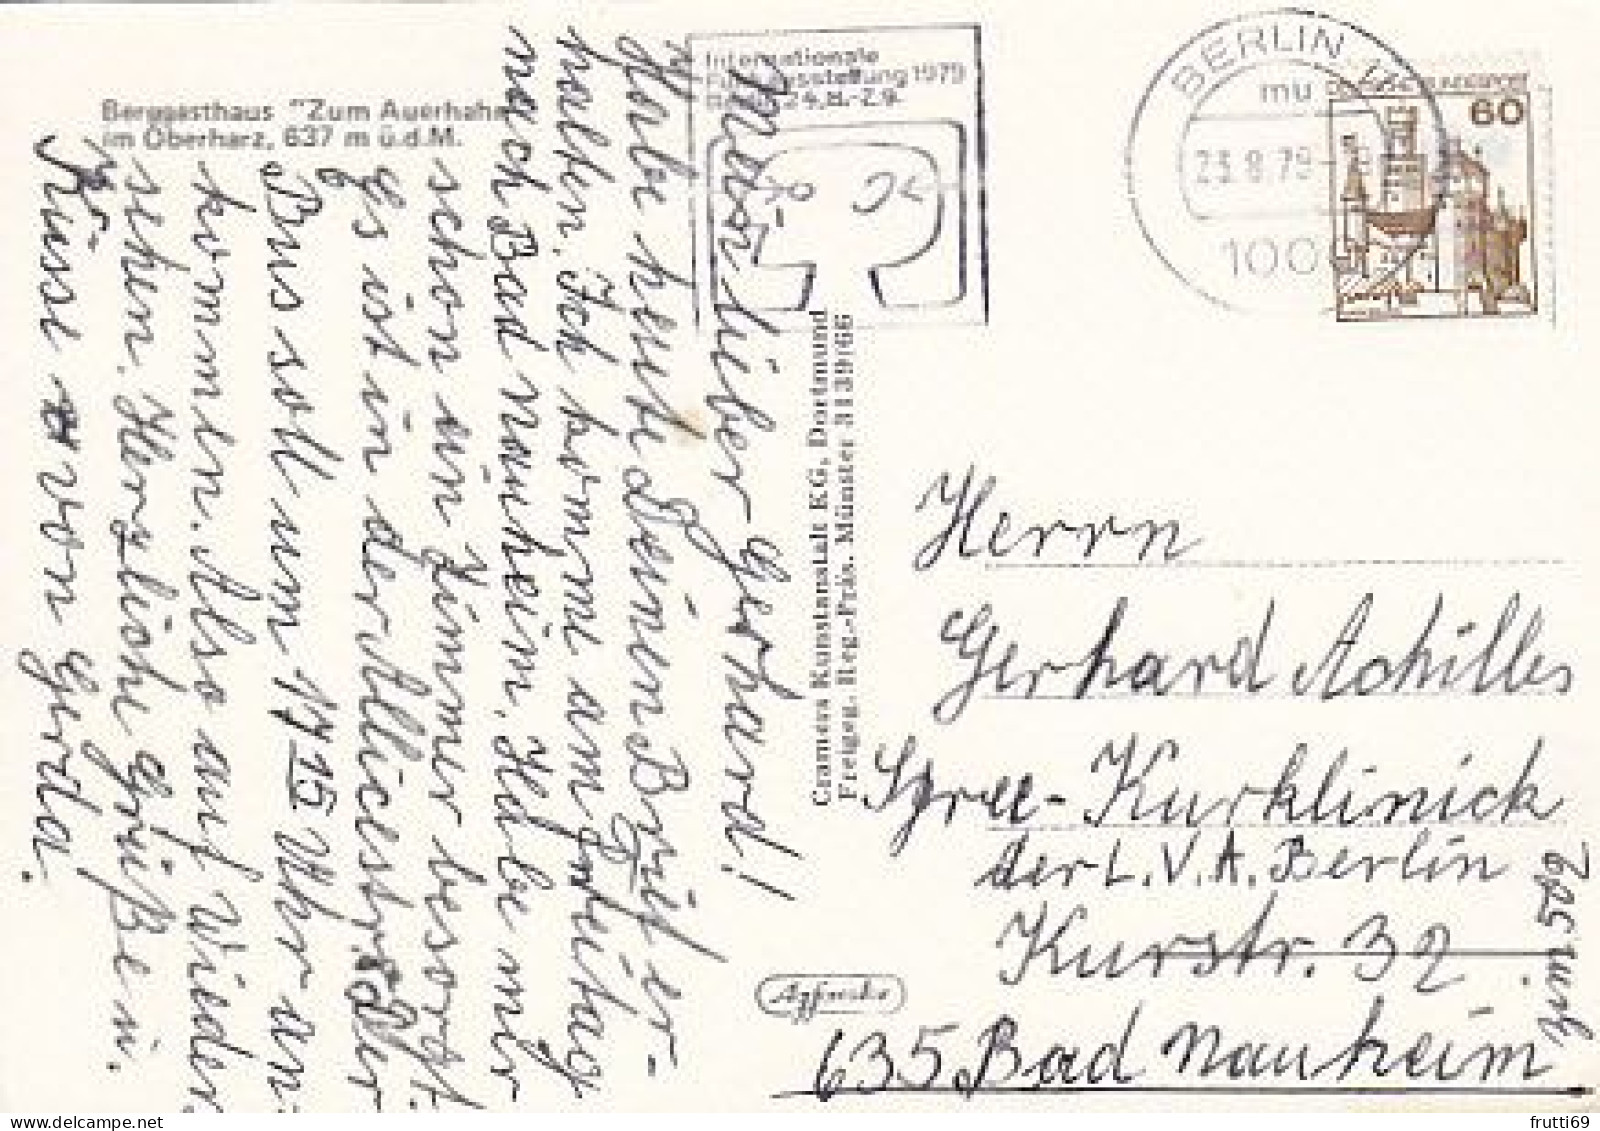 Berggasthaus "Zum Auerhahn"
im Oberharz, 637 m ü.d.M.
Internationale
Funkausstellung 1979
Berlin 24.8.-2.9.
BERLIN
mu
23.8.79
100
DEUTSCHE BUNDESPOST
60
Mein lieber Gerhard!
Habe heute Deinen Brief er-
halten. Ich komme am Freitag
nach Bad nauheim. Habe mir
schon ein Zimmer besorgt.
Es ist in der
Bus soll um 17 15 Uhr an-
kommen. Also auf Wieder-
sehen. Herzliche Grüße
Küsse von Gerda.
Cramers Kunstanstalt KG, Dortmund
Freigeg. Reg.-Präs. Münster 3139/66
Herrn
Gerhard Achilles
Spree-Kurklinick
der L.V.A. Berlin
Kurstr. 32
635 Bad Nauheim
Zim 502
delcampe.net
frutti69